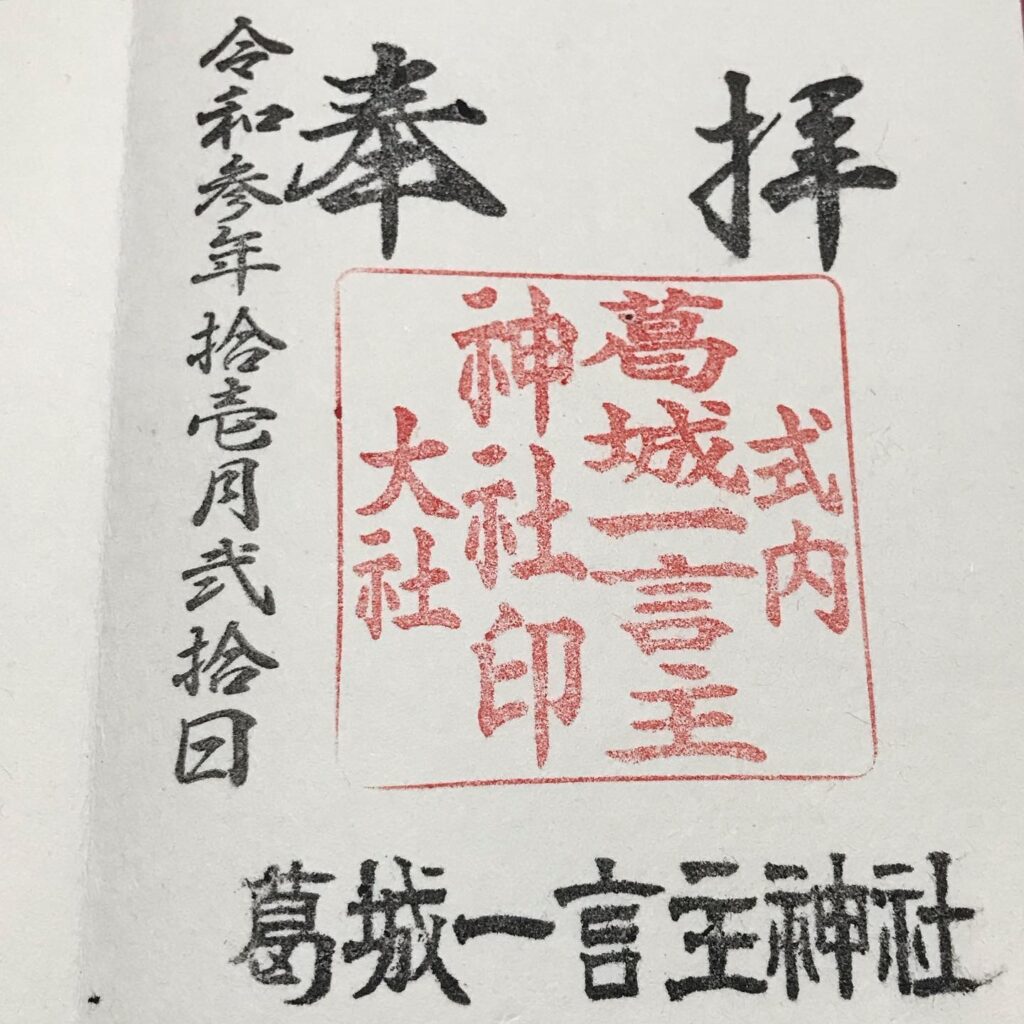 奉拝
式内
葛城一言主
神社印
大社
葛城一言主神社
令和参年拾壱月弐拾日